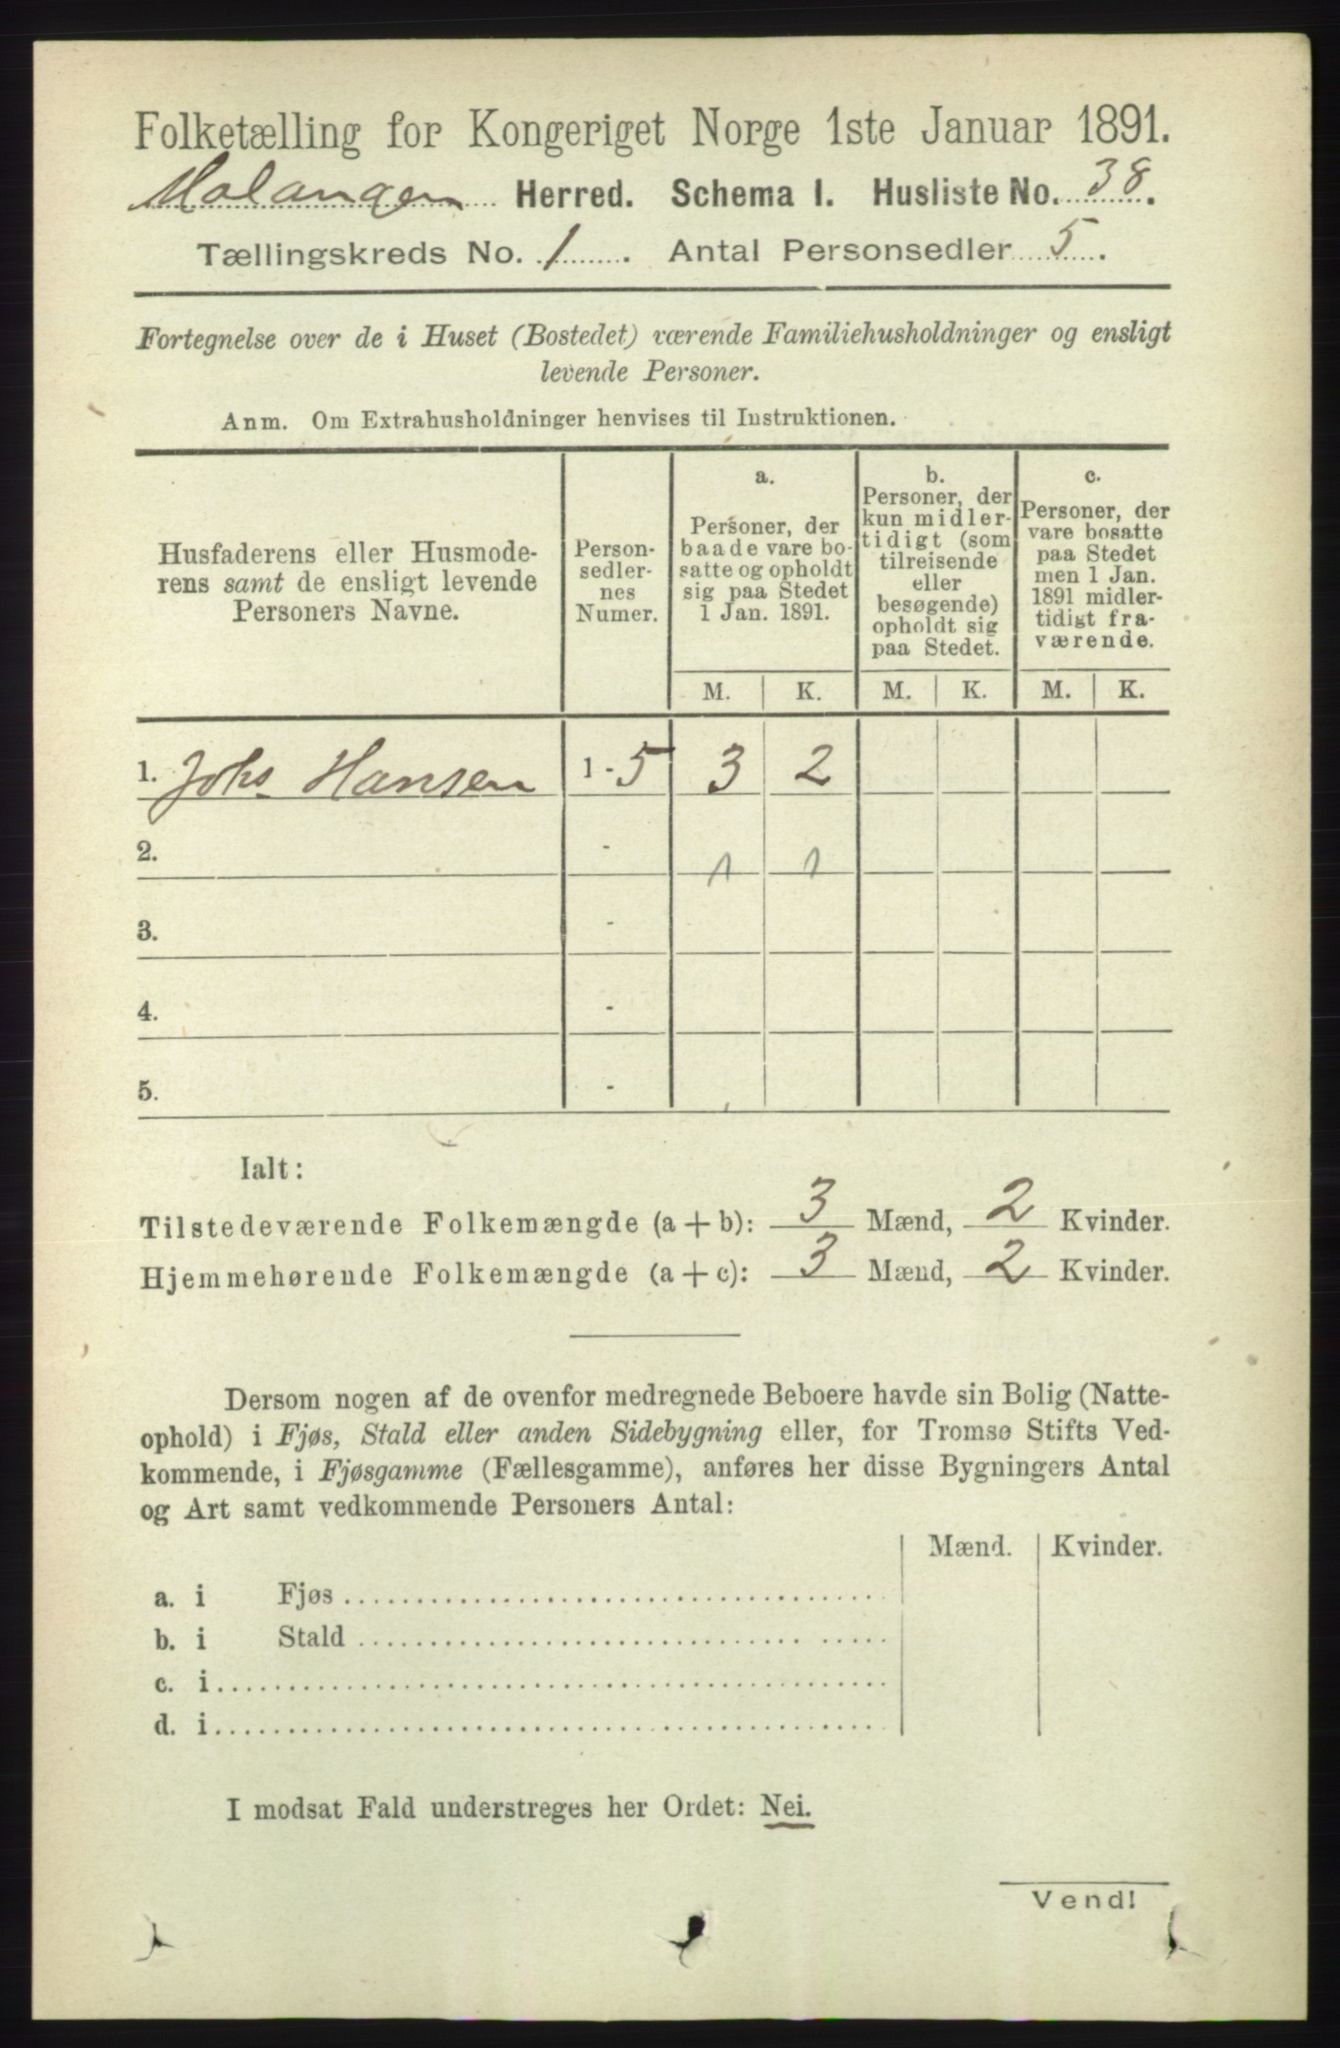 Folketælling for Kongeriget Norge 1ste Januar 1891.
Malangen Herred. Schema I. Husliste No. 38.
Tællingskreds No. 1. Antal Personsedler 5.
Fortegnelse over de i Huset (Bostedet) værende Familiehusholdninger og ensligt
levende Personer.
Anm. Om Extrahusholdninger henvises til Instruktionen.
Husfaderens eller Husmode-
rens samt de ensligt levende
Personers Navne.
Person-
sedler-
nes
Numer.
a.
Personer, der
baade vare bo-
satte og opholdt
sig paa Stedet
1 Jan. 1891.
b.
Personer, der
kun midler-
tidigt (som
tilreisende
eller
besøgende)
opholdt sig
paa Stedet.
c.
Personer, der
vare bosatte
paa Stedet
men 1 Jan.
1891 midler-
tidigt fra-
værende.
M. K. M. K. M. K.
1. Johs Hansen 1 - 5 3 2
2. - 1 1
3. -
4. -
5. -
Ialt:
Tilstedeværende Folkemængde (a + b): 3 Mænd, 2 Kvinder.
Hjemmehørende Folkemængde (a + c): 3 Mænd, 2 Kvinder.
Dersom nogen af de ovenfor medregnede Beboere havde sin Bolig (Natte-
ophold) i Fjøs, Stald eller anden Sidebygning eller, for Tromsø Stifts Ved-
kommende, i Fjøsgamme (Fællesgamme), anføres her disse Bygningers Antal
og Art samt vedkommende Personers Antal:
Mænd. Kvinder.
a. i Fjøs
b. i Stald
c. i
d. i
I modsat Fald understreges her Ordet: Nei.
Vend!